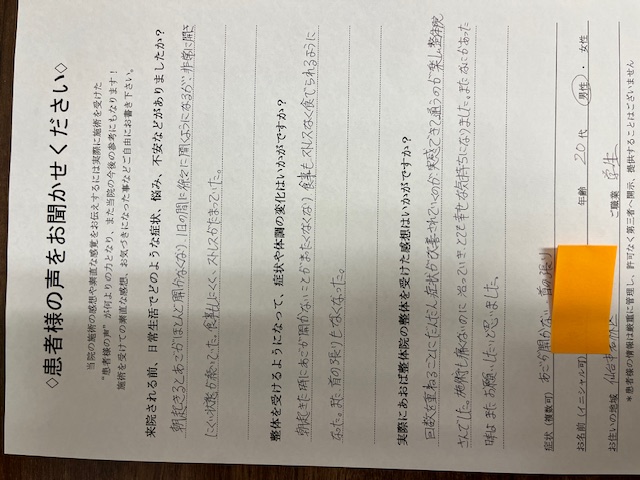 ◇患者様の声をお聞かせください◇
当院の施術の感想や素直な感覚をお伝えするには実際に施術を受けた
“患者様の声” が何よりの力となり、また当院の今後の参考にもなります！
施術を受けての素直な感想、お気づきになった事などご自由にお書き下さい。
来院される前、日常生活でどのような症状、悩み、不安などがありましたか？
朝起きるとあごがほとんど開かなくなり、1日の間に徐々に開くようになるが、非常に開き
にくい状態が続いていた。食事しにくく、ストレスがたまっていた。
整体を受けるようになって、症状や体調の変化はいかがですか？
朝起きた時にあごが開かないことがまったくなくなり食事もストレスなく食べられるように
なった。また首の張りもなくなった。
実際にあおば整体院の整体を受けた感想はいかがですか？
回数を重ねるごとにだんだん症状が改善されていくのが実感できて通うのが楽しい整体院
さんでした。施術も痛くないのに治っていき、とても幸せな気持ちになりました。またなにかあった
時はまたお願いしたいと思いました。
症状（複数可） あごが開かない 首の張り
お名前（イニシャル可） 年齢 20 代 男性 ・ 女性
お住いの地域 仙台市 ご職業 学生
＊患者様の情報は厳重に管理し、許可なく第三者へ開示、提供することはございません